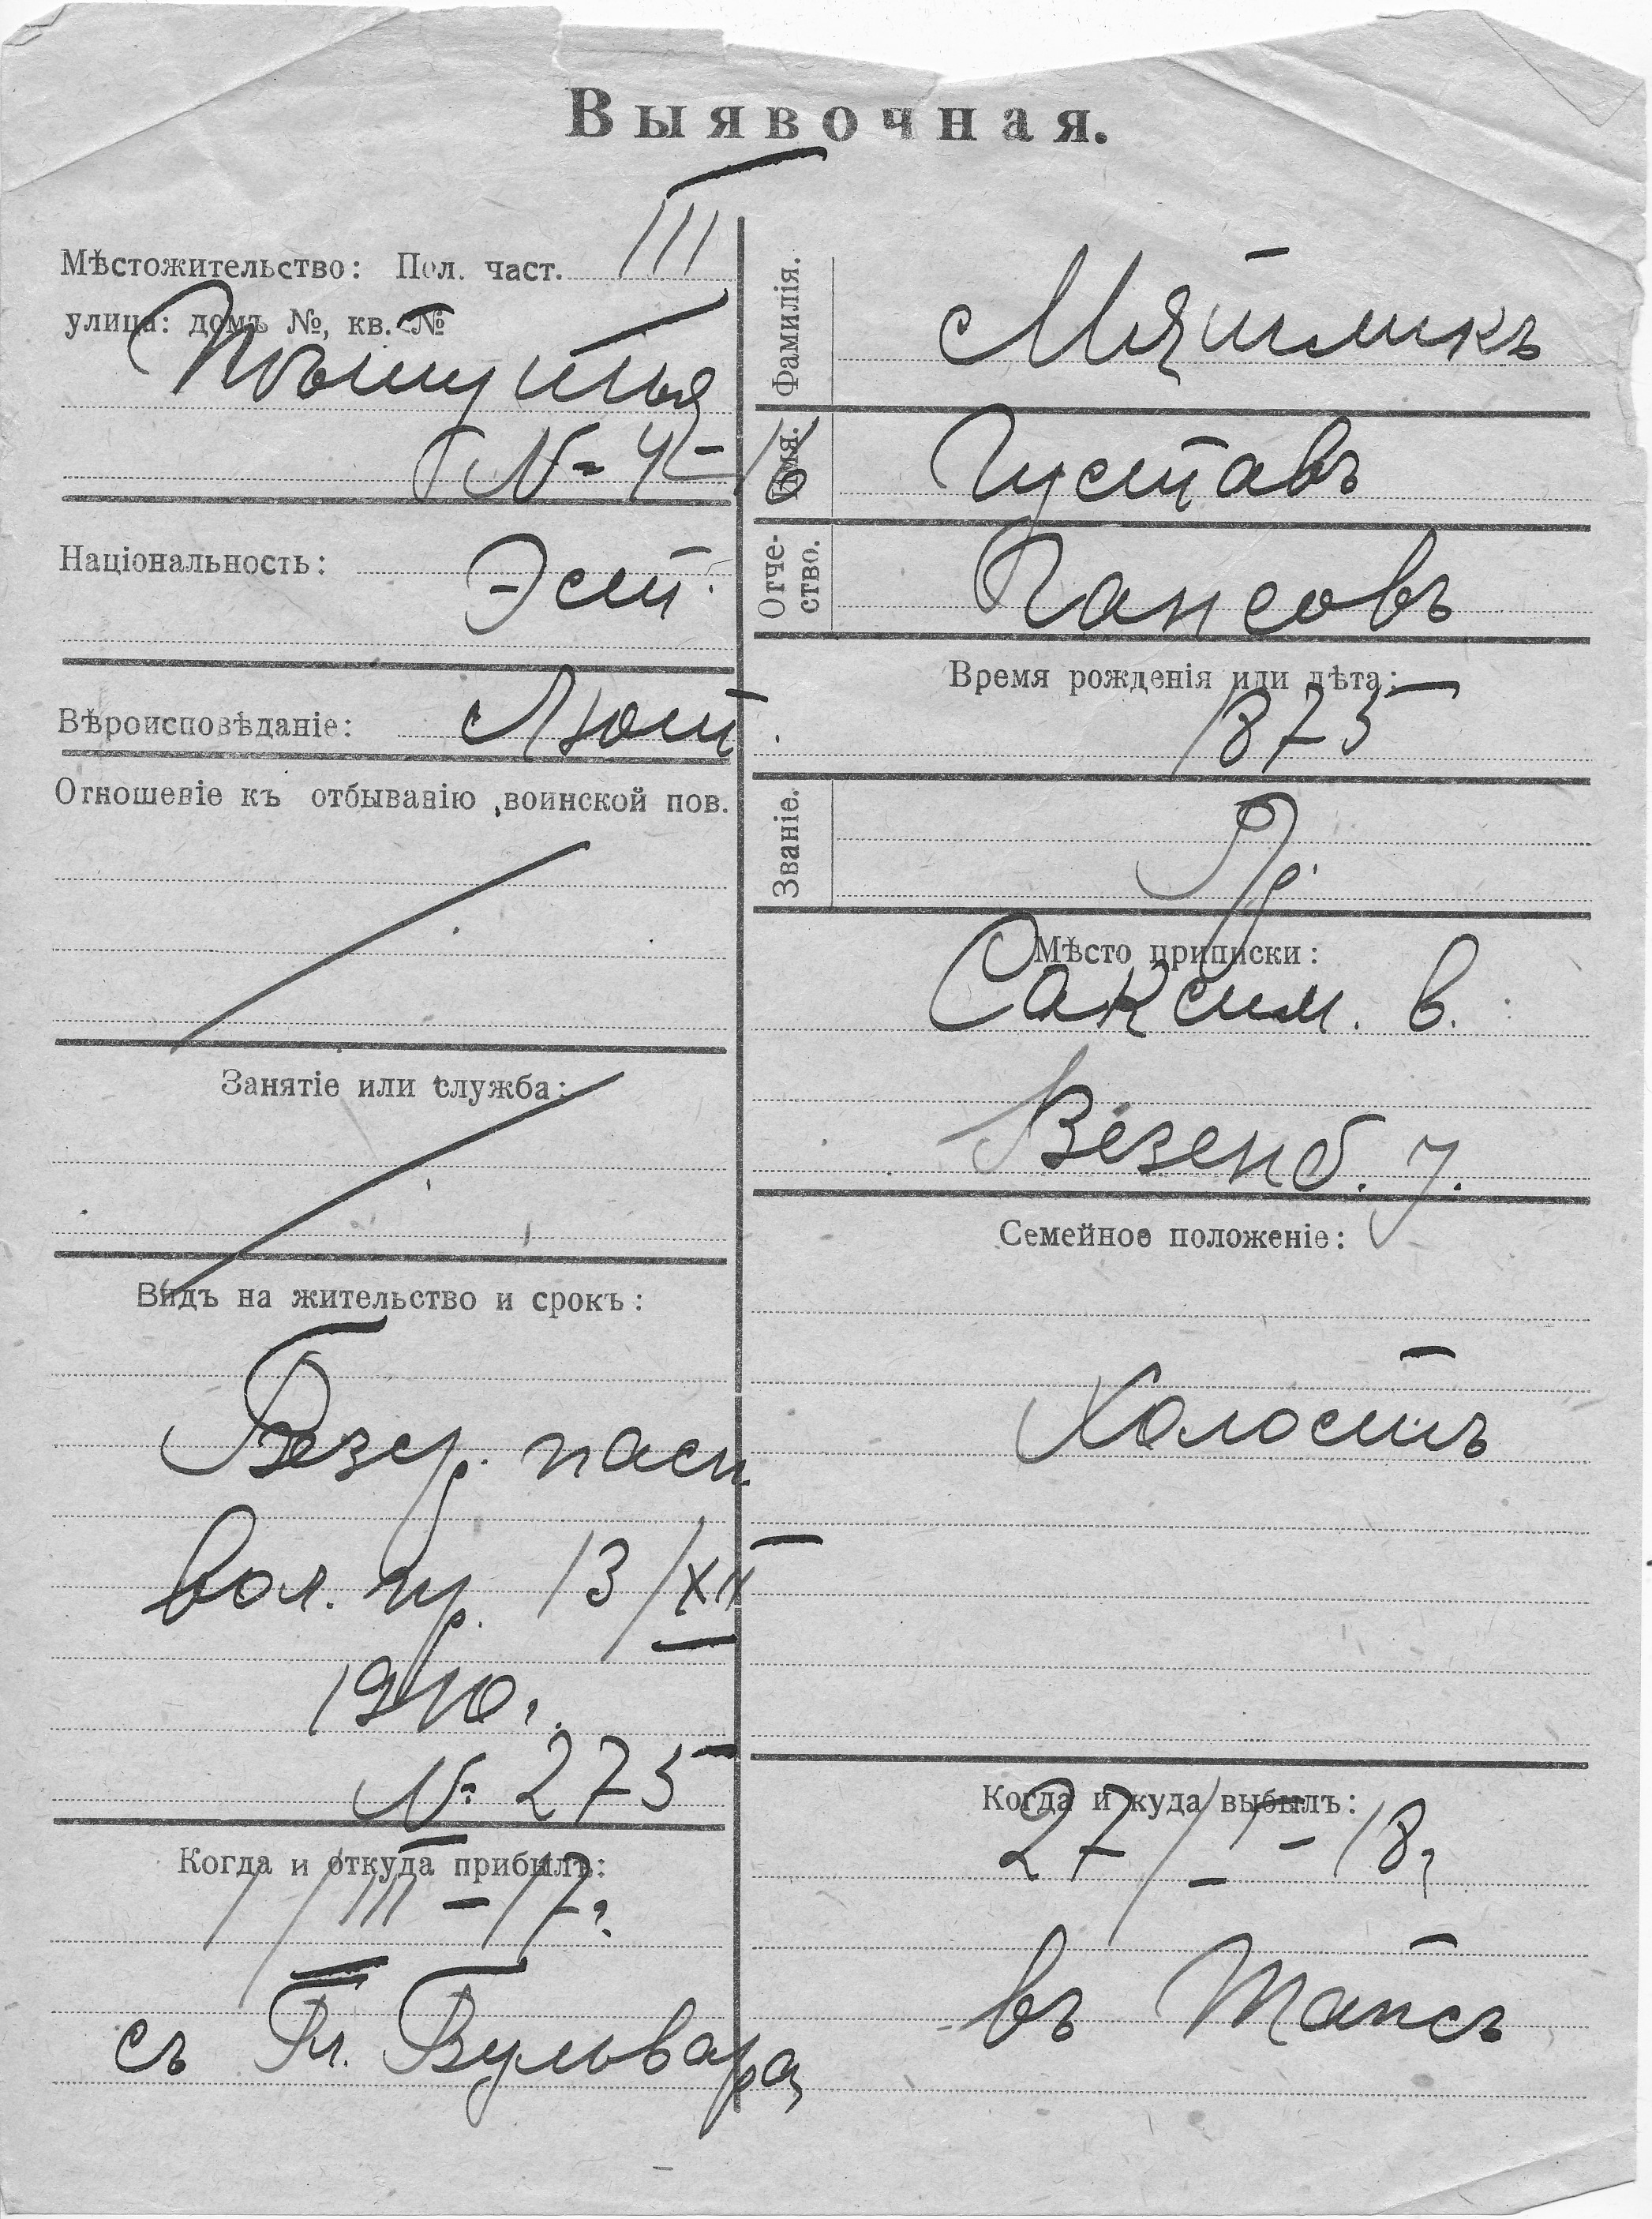 Выявочная.
Мѣстожительство: Пол. част. III
улица: домъ №, кв. №
№ 42-16
Національность: Эст.
Вѣроисповѣданіе: Лют.
Отношеніе къ отбыванію воинской пов.
Занятіе или служба:
Видъ на жительство и срокъ:
Безср. пасп.
вол. пр. 13/XII
1910г.
№ 275
Когда и откуда прибылъ:
1/III-17г.
съ Гл. Бульвара
Фамилія. Мятликъ
Имя. Густавъ
Отчество. Гансовъ
Время рожденія или лѣта:
1875
Званіе. Кр.
Мѣсто приписки:
в.
Везенб. у.
Семейное положеніе:
Холостъ
Когда и куда выбылъ:
27/I-18г
въ Тапсъ